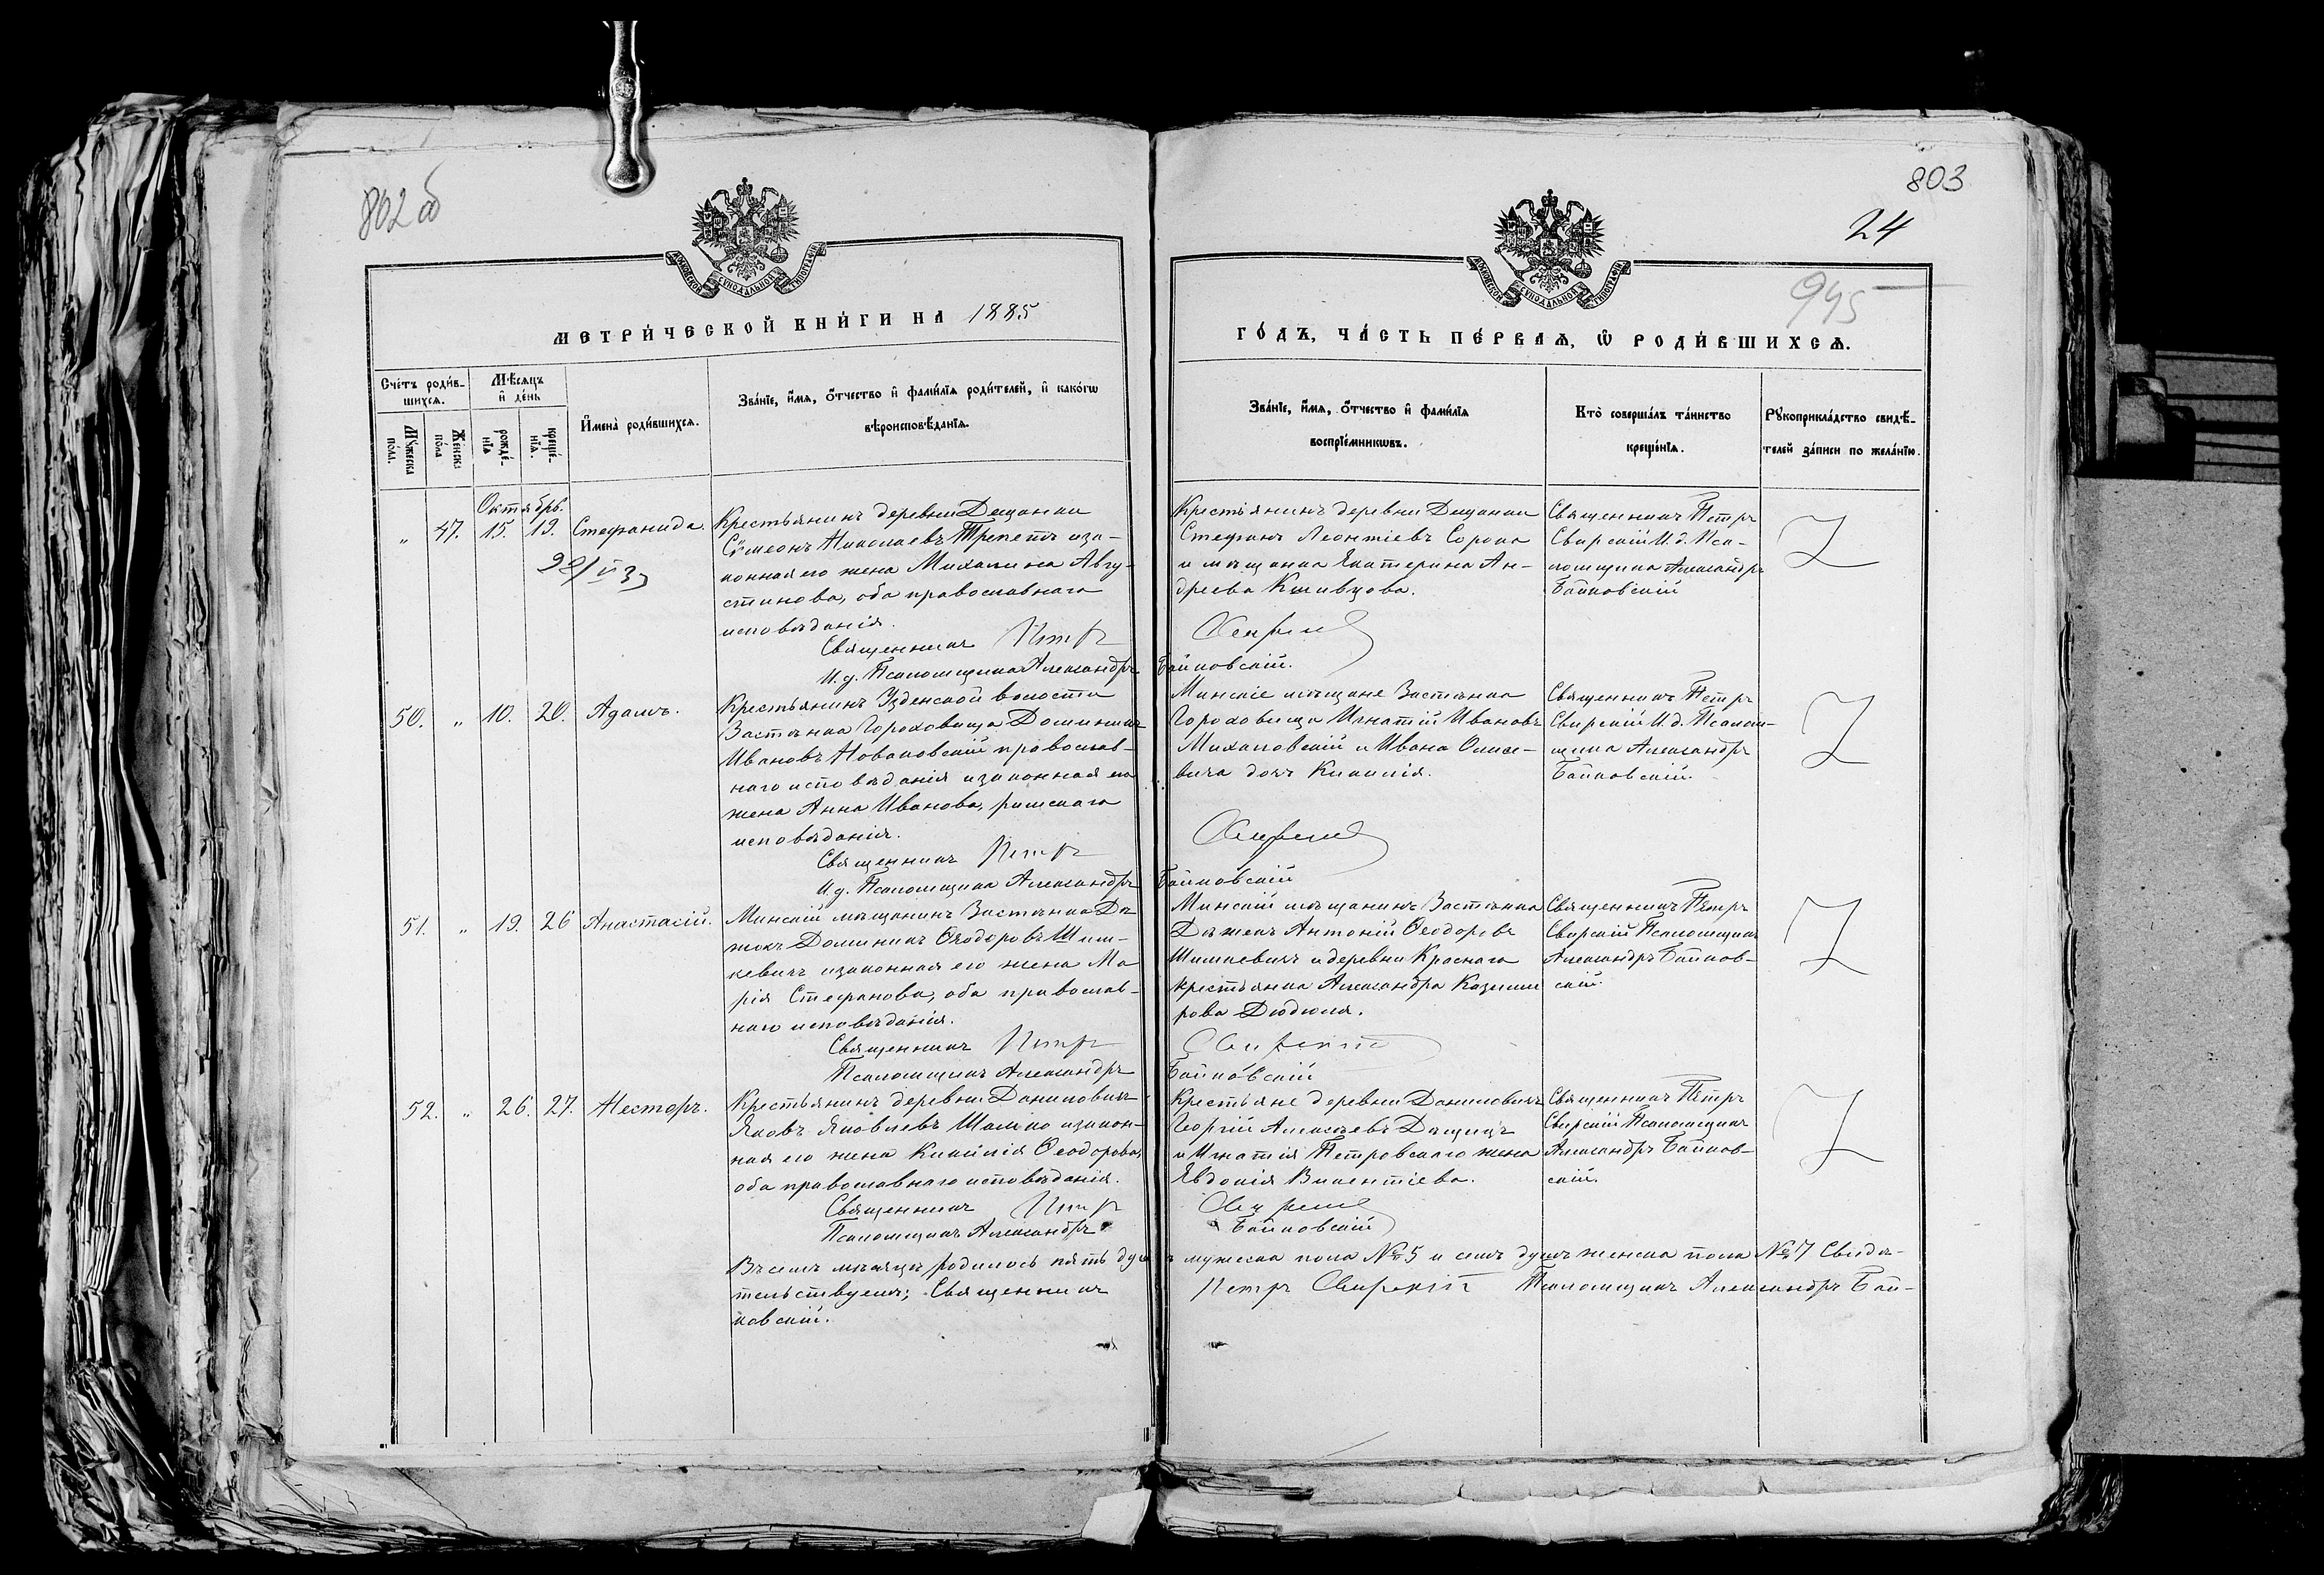 802 об
803
24
945
МЕТРИ́ЧЕСКОЙ КНИ́ГИ НА 1885
ГО́ДЪ, ЧА́СТЬ ПЕ́РВАѦ, Ѡ РОДИ́ВШИХСѦ.
Сче́тъ роди́в-
шихсѧ.
Мѣ́сѧцъ
и҆ де́нь
И҆мена̀ роди́вшихсѧ.
Зва́нїе, и҆́мѧ, ѻ҆́тчество и҆ фами́лїѧ роди́телей, и҆ како́гѡ
вѣроисповѣ́данїѧ.
Мꙋ́жеска
по́ла.
Же́нска
по́ла
рожде́-
нїѧ
креще́-
нїѧ.
Зва́нїе, и҆́мѧ, ѻ҆́тчество и҆ фами́лїѧ
воспрїе́мникѡвъ.
Кто̀ соверша́лъ та́инство
креще́нїѧ.
Рꙋкоприкла́дство свидѣ́-
телей за́писи по жела́нїю.
Октябрь.
" 47. 15. 19. Стефанида.
Крестьянинъ деревни Дещанки
Сѵмеонъ Николаевъ Трепетъ иза-
конная его жена Михалина Авгу-
стинова, оба православнаго
исповѣданія.
Священникъ Петръ
И. д. Псаломщика Александръ
Крестьянинъ деревни Дещанки
Стефанъ Леонтіевъ Сорока
и мѣщанка Екатерина Ан-
дреева Кшивцова.
Свирскій
Байковскій.
Священникъ Петръ
Свирскій И. д. Пса-
ломщика Александръ
Байковскій
50. " 10. 20. Адамъ.
Крестьянинъ Узденской волости
Застѣнка Гороховища Доминикъ
Ивановъ Новаковскій православ-
наго исповѣданія изаконная его
жена Анна Иванова, римскаго
исповѣданія.
Священникъ Петръ
И. д. Псаломщика Александръ
Минскіе мѣщане Застѣнка
Гороховища Игнатій Ивановъ
Михаловскій и Ивана Олихе-
вича дочь Киликія.
Свирскій
Байковскій
Священникъ Петръ
Свирскій И. д. Псалом-
щика Александръ
Байковскій.
51. " 19. 26 Анастасій.
Минскій мѣщанинъ Застѣнка Дя-
жекъ Доминикъ Ѳеодоровъ Шиш-
кевичъ изаконная его жена Ма
рія Стефанова, оба православ-
наго исповѣданія.
Священникъ Петръ
Псаломщикъ Александръ
Минскій мѣщанинъ Застѣнка
Дяжекъ Антоній Ѳеодоровъ
Шишкевичъ и деревни Краснаго
крестьянка Александра Казими
рова Дюдюля.
Свирскій
Байковскій
Священникъ Петръ
Свирскій Псаломщикъ
Александръ Байков-
скій.
52. " 26. 27. Несторъ.
Крестьянинъ деревни Даниловичъ
Яковъ Яковлевъ Шалко изакон-
ная его жена Киликія Ѳеодорова,
оба православнаго исповѣданія.
Священникъ Петръ
Псаломщикъ Александръ
Крестьяне деревни Даниловичъ
Георгій Алексѣевъ Дящицъ
и Игнатія Петровскаго жена
Евдокія Викентіева.
Свирскій
Байковскій
Священникъ Петръ
Свирскій Псаломщикъ
Александръ Байков-
скій.
Въ семъ мѣсяцѣ родилось пять душъ мужеска пола №5 и семь душъ женска пола №7 Свидѣ-
тельствуемъ; Священникъ Петръ Свирскій Псаломщикъ Александръ Бай-
ковскій.